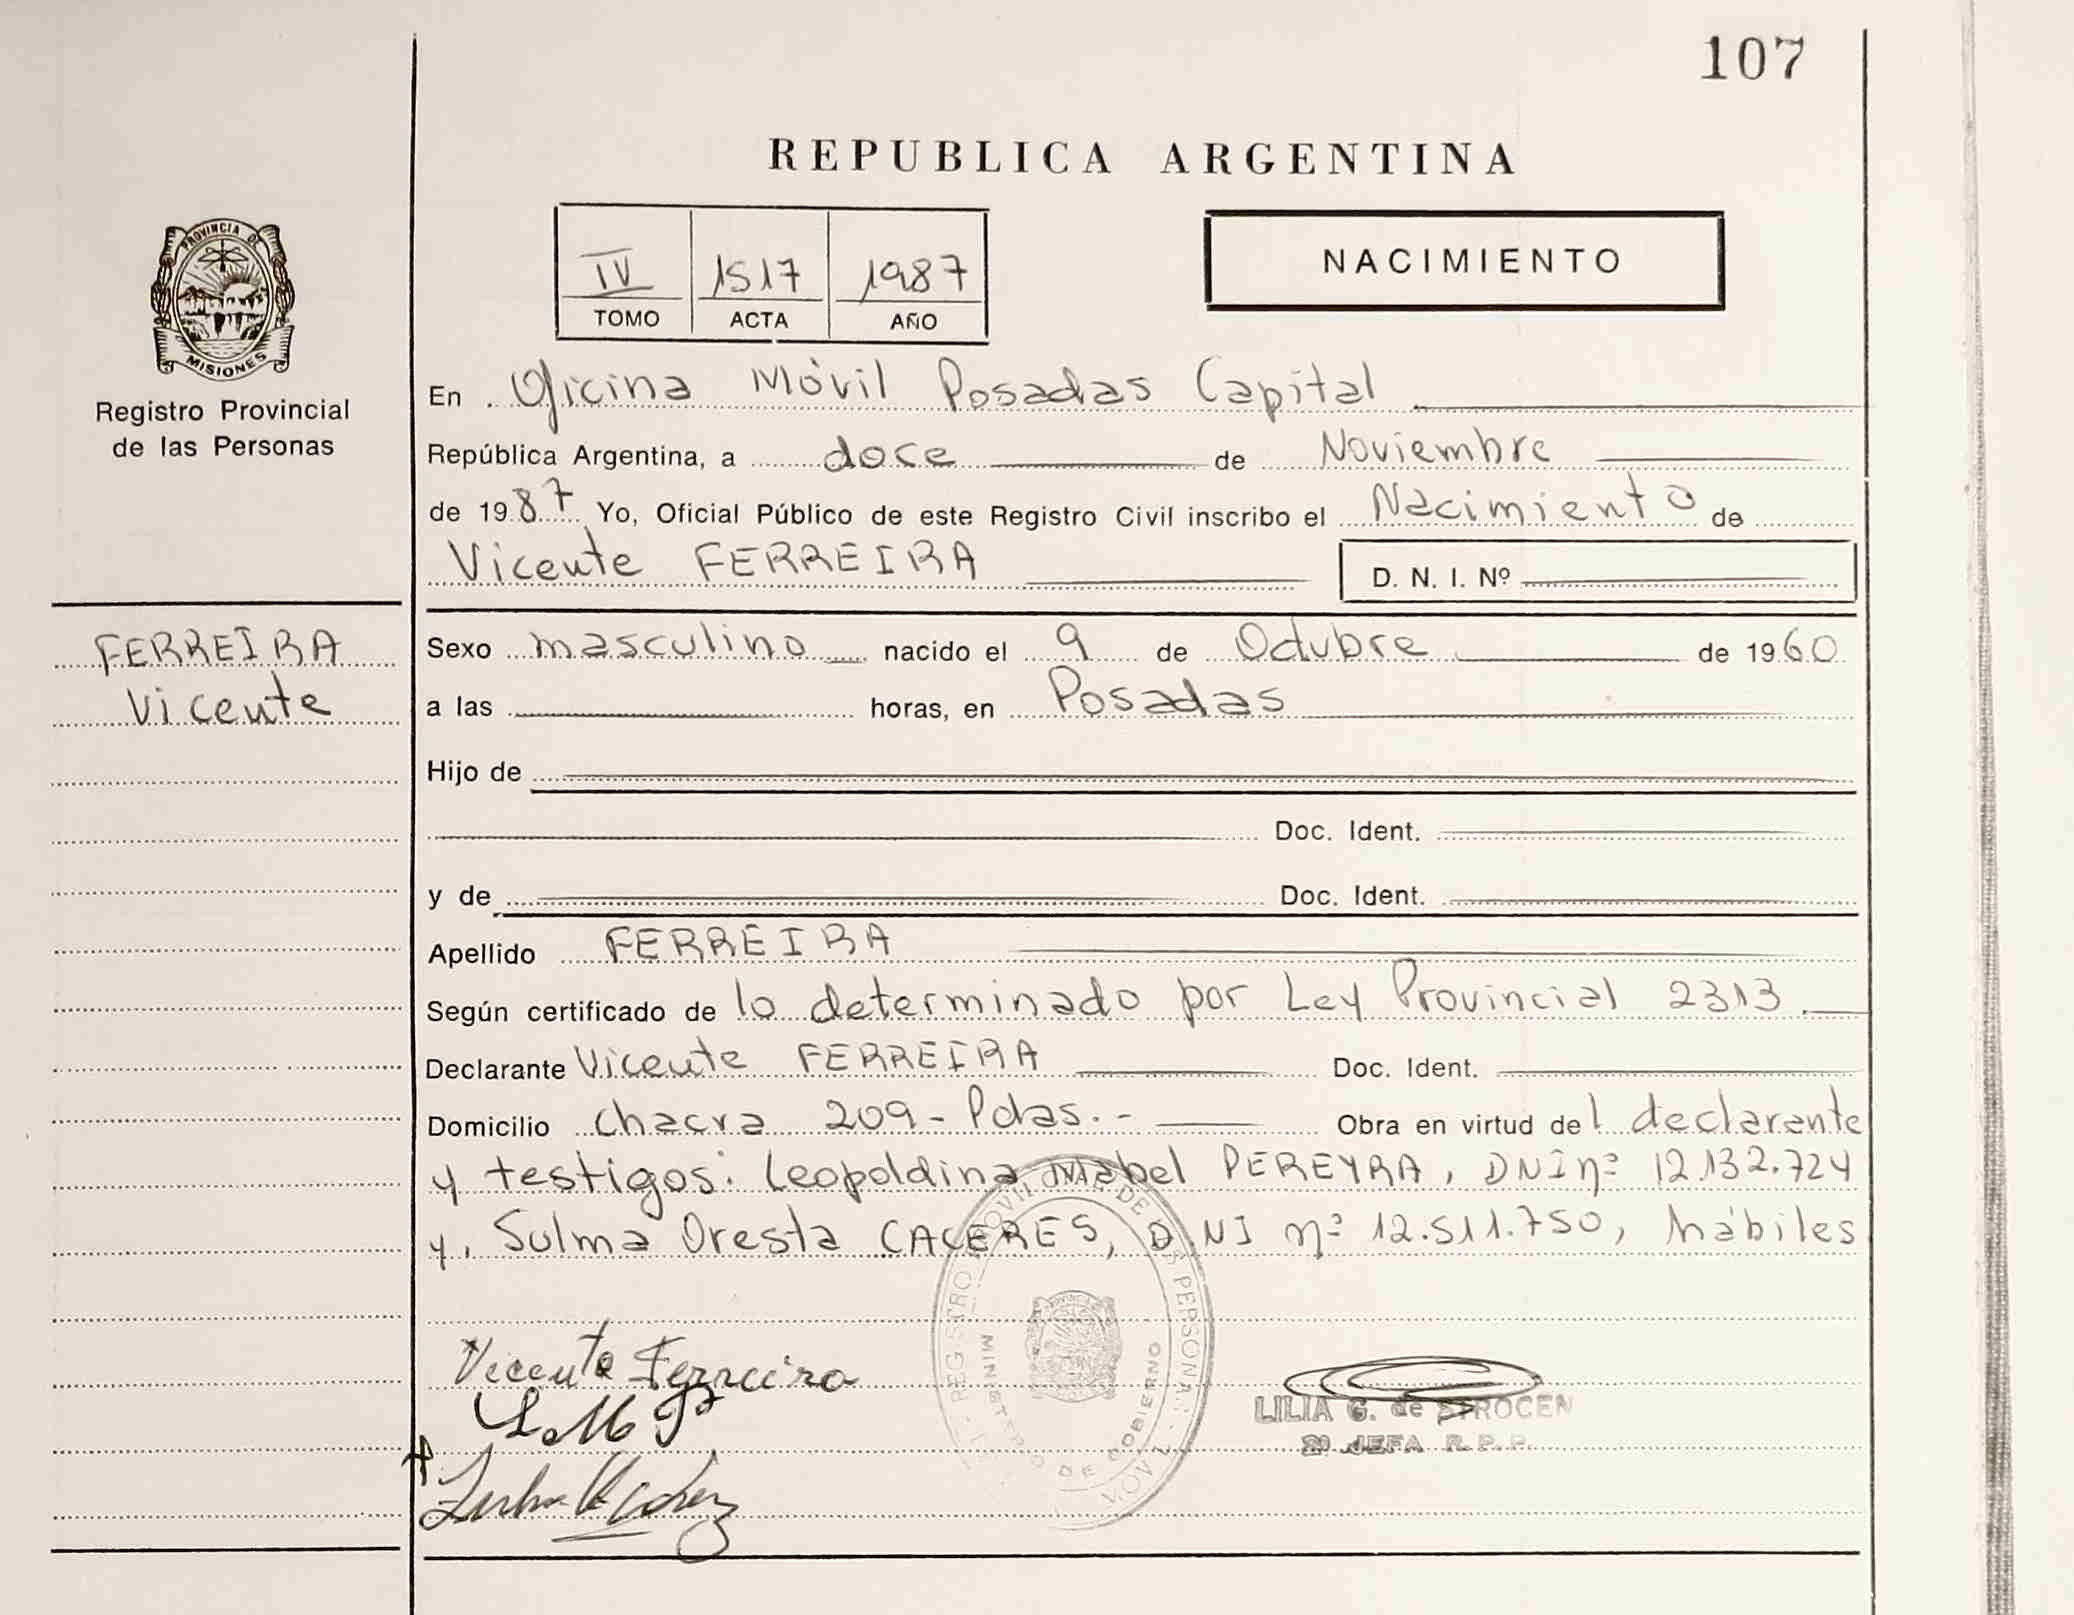 107
REPUBLICA ARGENTINA
IV 1517 1987
TOMO ACTA AÑO
NACIMIENTO
PROVINCIA DE
MISIONES
Registro Provincial
de las Personas
En Oficina Móvil Posadas Capital
República Argentina, a doce de Noviembre
de 1987 Yo, Oficial Público de este Registro Civil inscribo el Nacimiento de
Vicente FERREIRA D. N. I. Nº
FERREIRA
Vicente
Sexo masculino nacido el 9 de Octubre de 1960
a las horas, en Posadas
Hijo de
Doc. Ident.
y de Doc. Ident.
Apellido FERREIRA
Según certificado de lo determinado por Ley Provincial 2313
Declarante Vicente FERREIRA Doc. Ident.
Domicilio chacra 209 - Pdas. - Obra en virtud del declarante
y testigos: Leopoldina Mabel PEREYRA, DNI nº 12.132.724
y, Sulma Oresta CACERES, D.NI nº 12.511.750, hábiles
Vicente Ferreira
L.M P
REGISTRO DE PERSONAS
MINISTERIO DE GOBIERNO
LILIA G. de
2º JEFA R.P.P.